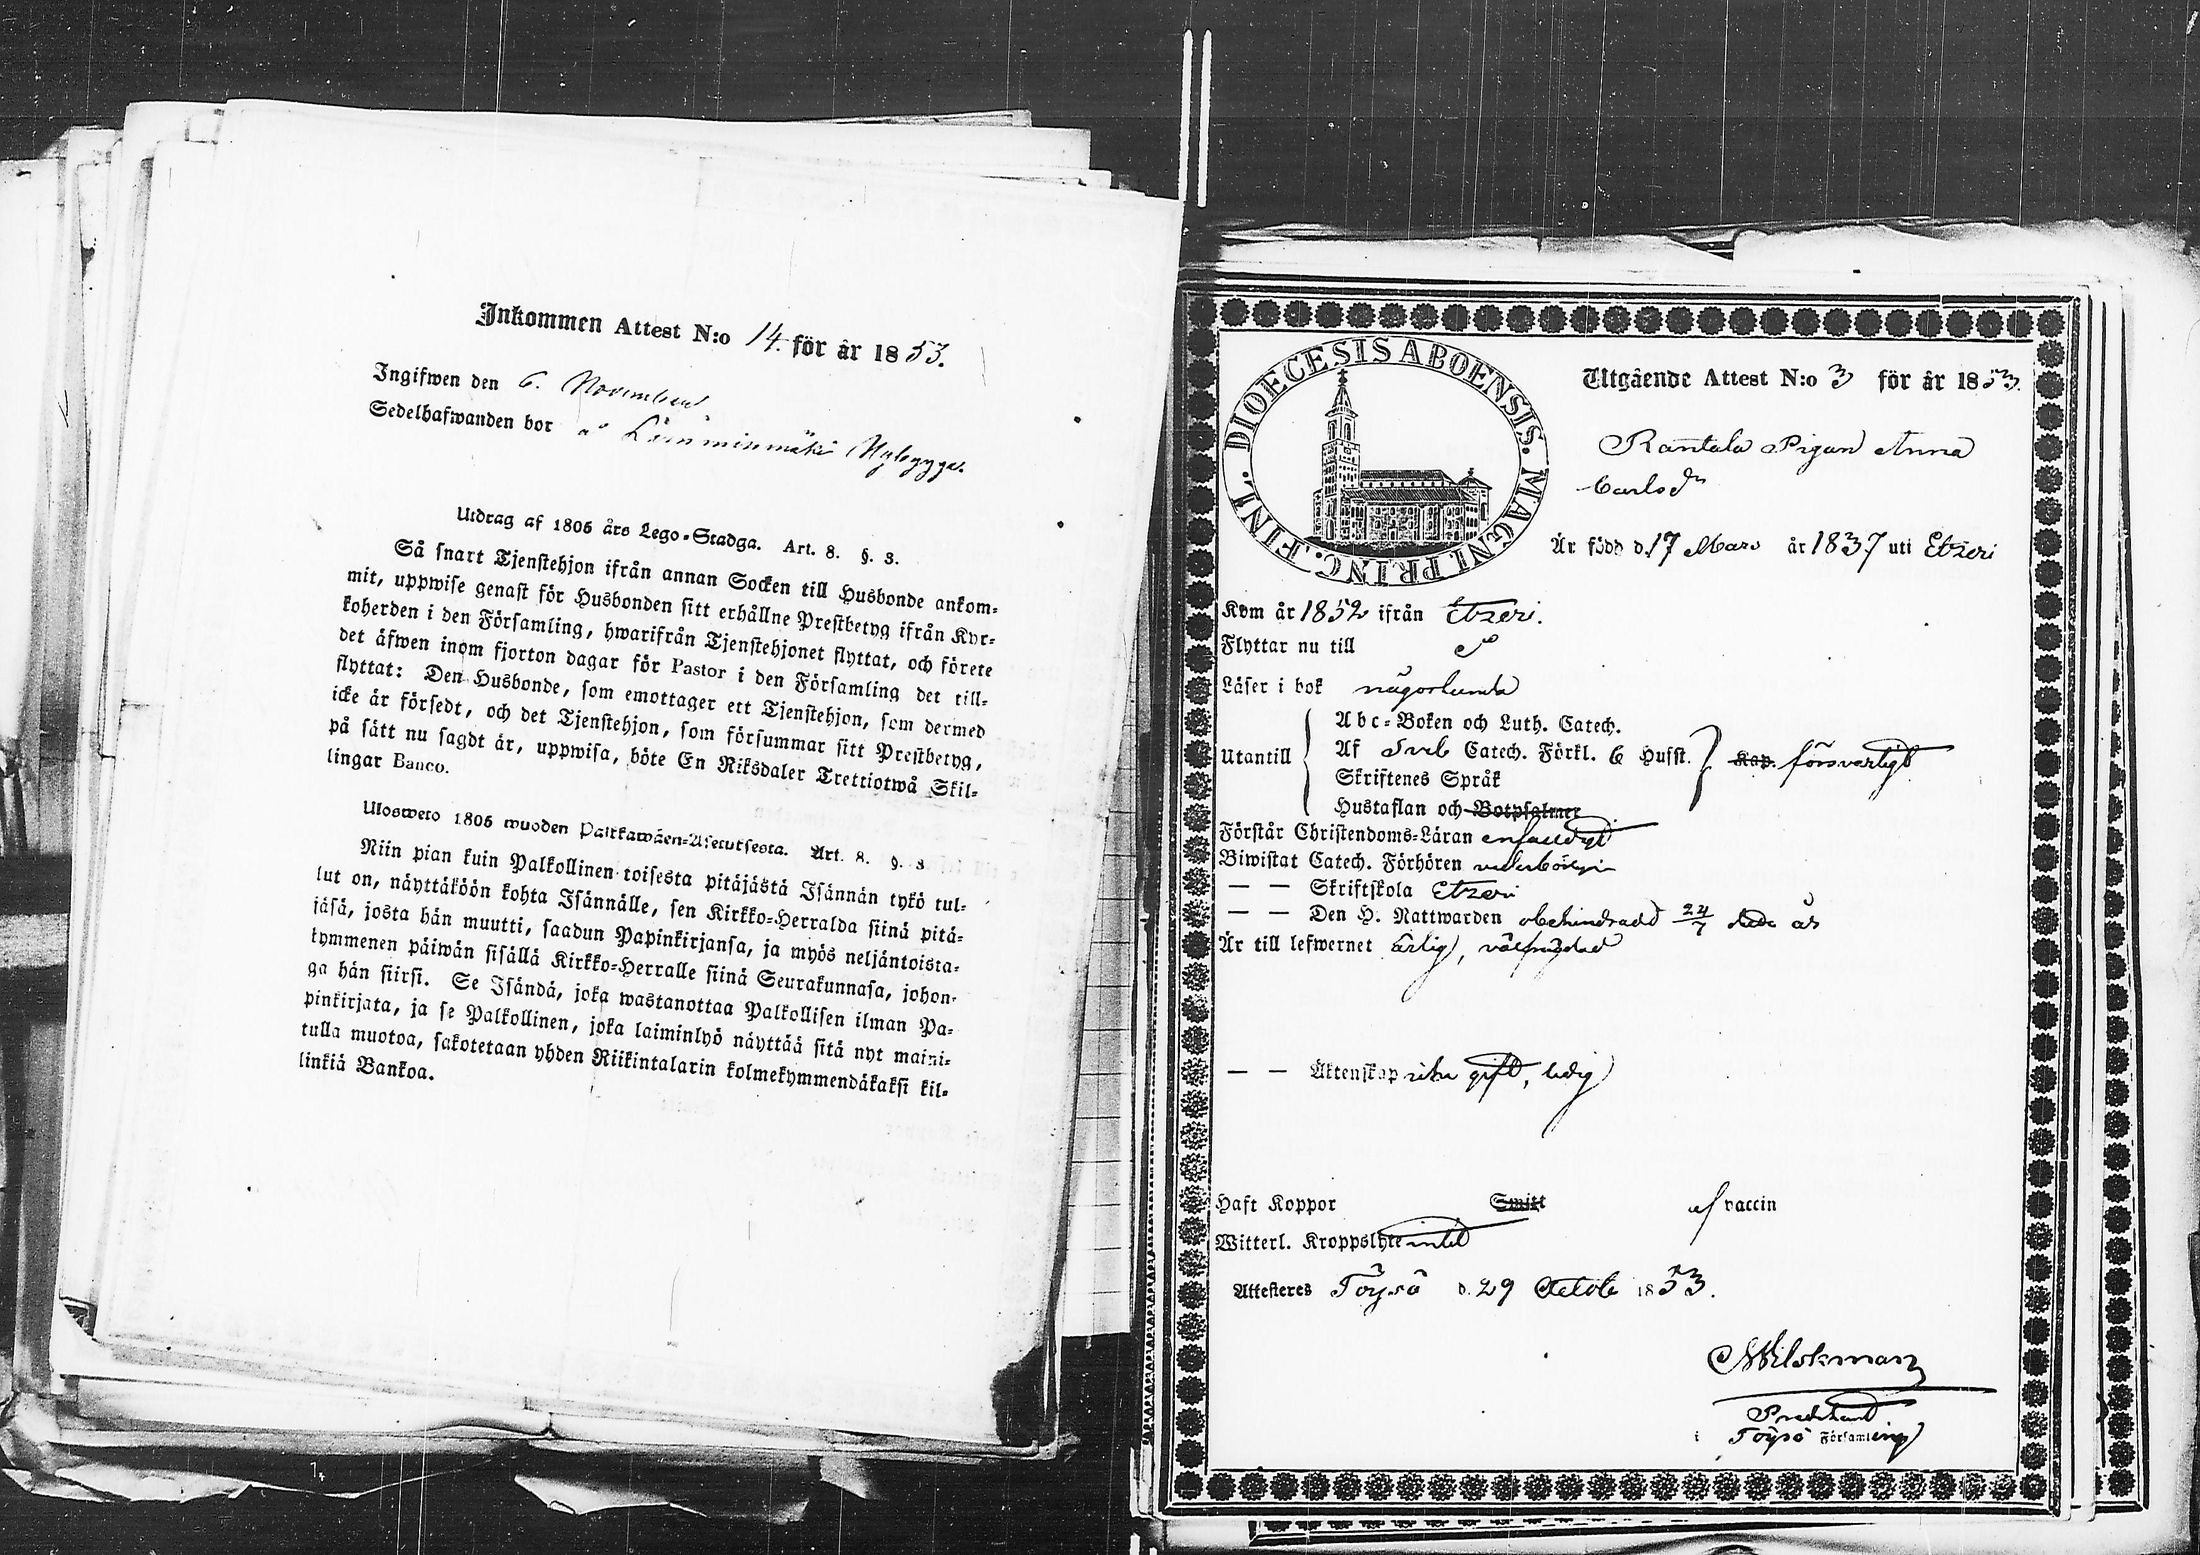 Inkommen Attest N:o 14 för år 1853.
Ingifwen den 6. November
Sedelhafwanden bor å Nybygge.
Utdrag af 1805 års Lego-Stadga. Art. 8. §. 3.
Så snart Tjenstehjon ifrån annan Socken till Husbonde ankom-
mit, uppwise genast för Husbonden sitt erhållne Prestbetyg ifrån Kyr-
koherden i den Församling, hwarifrån Tjenstehjonet flyttat, och förete
det äfwen inom fjorton dagar för Pastor i den Församling det till-
flyttat: Den Husbonde, som emottager ett Tjenstehjon, som dermed
icke är försedt, och det Tjenstehjon, som försummar sitt Prestbetyg,
på sätt nu sagdt är, uppwisa, böte En Riksdaler Trettiotwå Skil-
lingar Banco.
Ulosweto 1805 wuoden Palkkawäen-Asetuksesta. Art. 8. §. 3
Niin pian kuin Palkollinen toisesta pitäjästä Isännän tykö tul-
lut on, näyttäköön kohta Isännälle, sen Kirkko-Herralda siinä pitä-
jäsä, josta hän muutti, saadun Papinkirjansa, ja myös neljäntoista-
kymmenen päiwän sisällä Kirkko-Herralle siinä Seurakunnasa, johon-
ga hän siirsi. Se Isändä, joka wastanottaa Palkollisen ilman Pa-
pinkirjata, ja se Palkollinen, joka laiminlyö näyttää sitä nyt maini-
tulla muotoa, sakotetaan yhden Riikintalarin kolmekymmendäkaksi kil-
linkiä Bankoa.
DIOECESIS ABOENSIS. MAGNI PRINC. FINL.
Utgående Attest N:o 3 för år 1853.
Rantala Pigan Anna
Carlsdr
Är född d. 17 Mars år 1837 uti Etzeri
Kom år 1852 ifrån Etzeri.
Flyttar nu till
Läser i bok någorlunda
Abc-Boken och Luth. Catech.
Utantill Af Sveb Catech. Förkl. 6 Hufst. Kap. försvarligt
Skriftenes Språk
Hustaflan och Botpsalmer
Förstår Christendoms-Läran enfaldigt
Biwistat Catech. Förhören vederbörligen
— — Skriftskola Etzeri
— — Den H. Nattwarden obehindrad 24/7 år
Är till lefwernet ärlig, välfrägdad
— — Äktenskap icke gift, ledig
Haft Koppor Smitt af vaccin
Witterl. Kroppslyte intet
Attesteres Töysö d. 29 Octob 1853.
i Töysö Församling